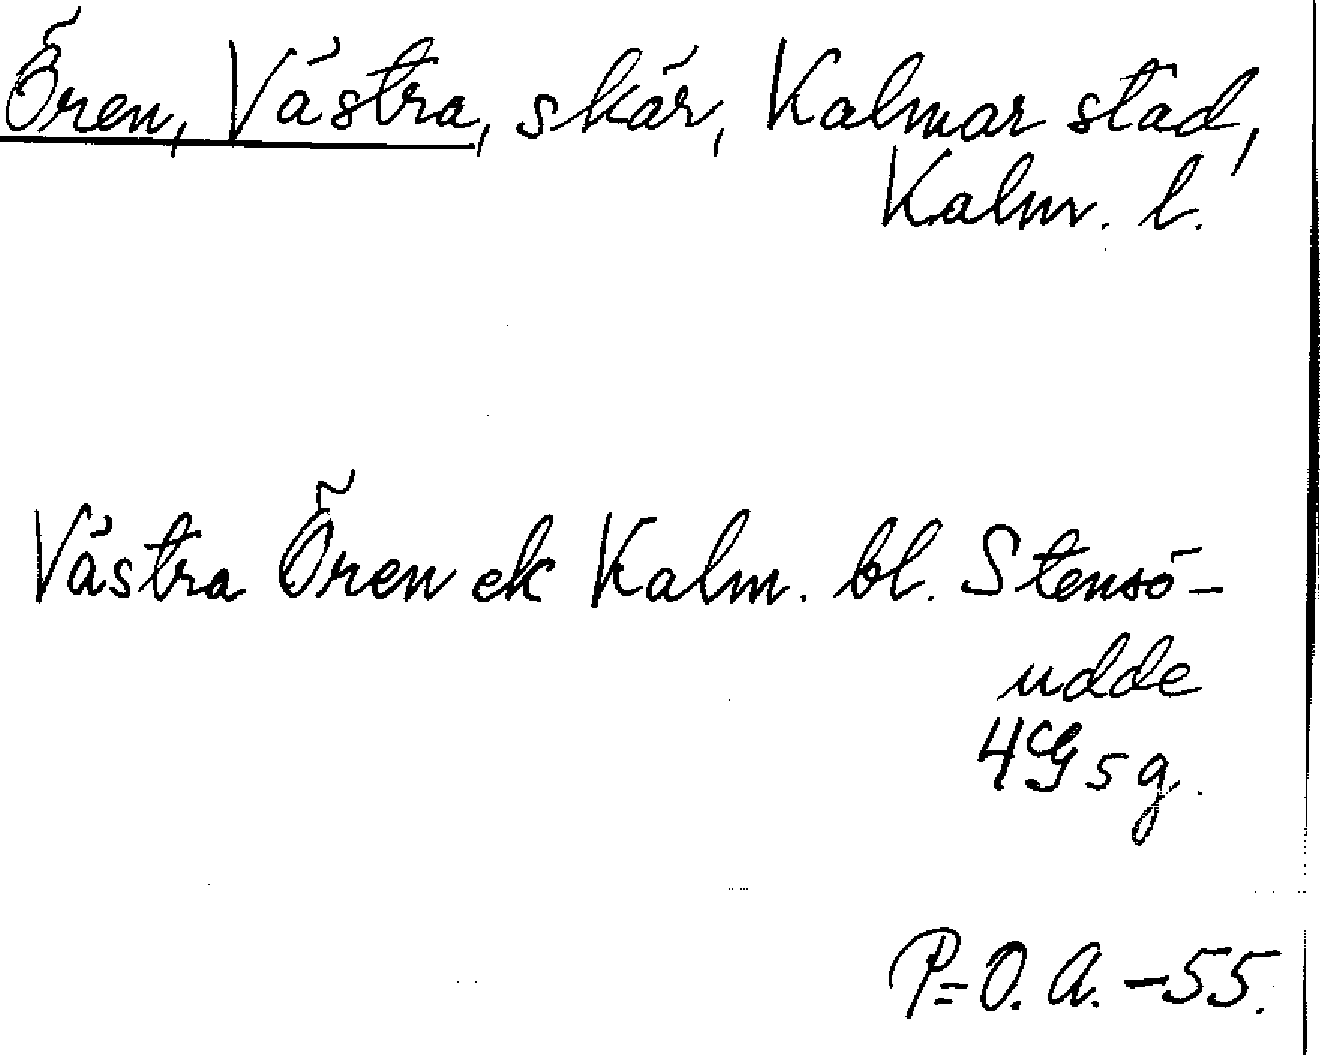 Ören, Västra, skär, Kalmar stad,
Kalm. l.
Västra Ören ek Kalm. bl. Stensö-
udde
4G5g.
P=O. A. -55.